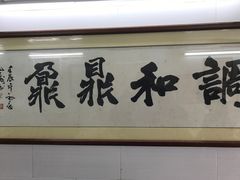 調和鼎鼐